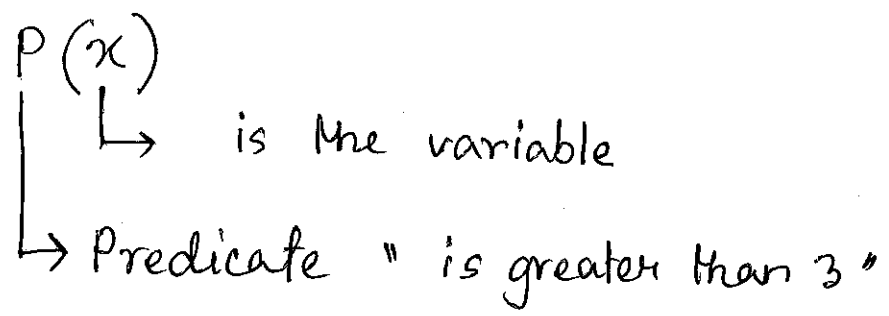 P(x)
is the variable
Predicate " is greater than 3"